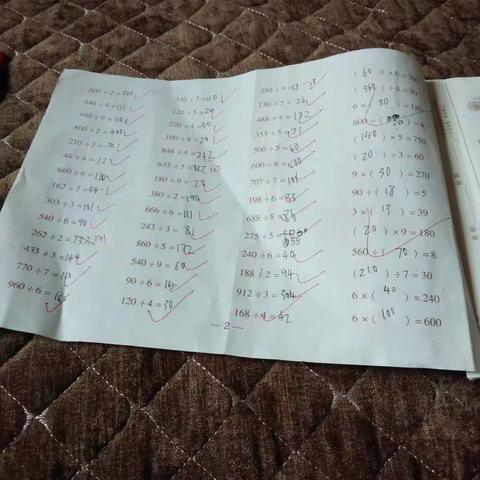 600÷2=300
444÷4=111
990÷9=110
800÷2=400
210÷3=
48÷4=12
660÷6=110
162÷3=54
303÷3=101
540÷6=90
262÷2=
435÷3=
770÷7=110
960÷6=
330÷3=110
120÷5=24
220÷4=
160÷4=
848÷4=212
635÷5=
180÷9=20
380÷2=190
666÷6=111
243÷3=81
860÷5=172
540÷9=60
90÷6=15
120÷4=30
350÷9=
130÷5=26
488÷4=
355÷5=71
300÷5=60
600÷6=100
707÷7=101
198÷6=33
688÷8=86
275÷5=
240÷6=40
188÷2=94
912÷3=304
168÷4=42
(60)×6=360
÷4=50
6×(30)=180
800÷( )=4
(150)×5=750
(20)÷3=60
9×(30)=270
90÷(18)=5
3×(13)=39
(20)×9=180
560÷(70)=8
(210)÷7=30
6×(40)=240
6×(100)=600
—2—